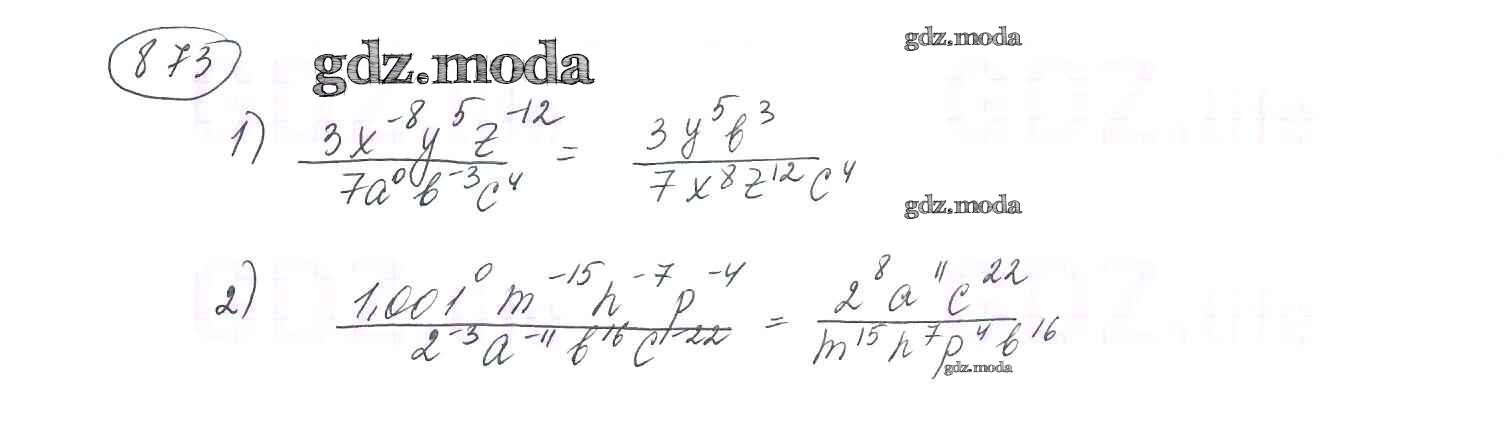 873
gdz.moda
gdz.moda
1) 3x⁻⁸y⁵z⁻¹² / 7a⁰b⁻³c⁴ = 3y⁵b³ / 7x⁸z¹²c⁴
gdz.moda
2) 1,001⁰ m⁻¹⁵n⁻⁷p⁻⁴ / 2⁻³a⁻¹¹b¹⁶c⁻²² = 2⁸a¹¹c²² / m¹⁵n⁷p⁴b¹⁶
gdz.moda